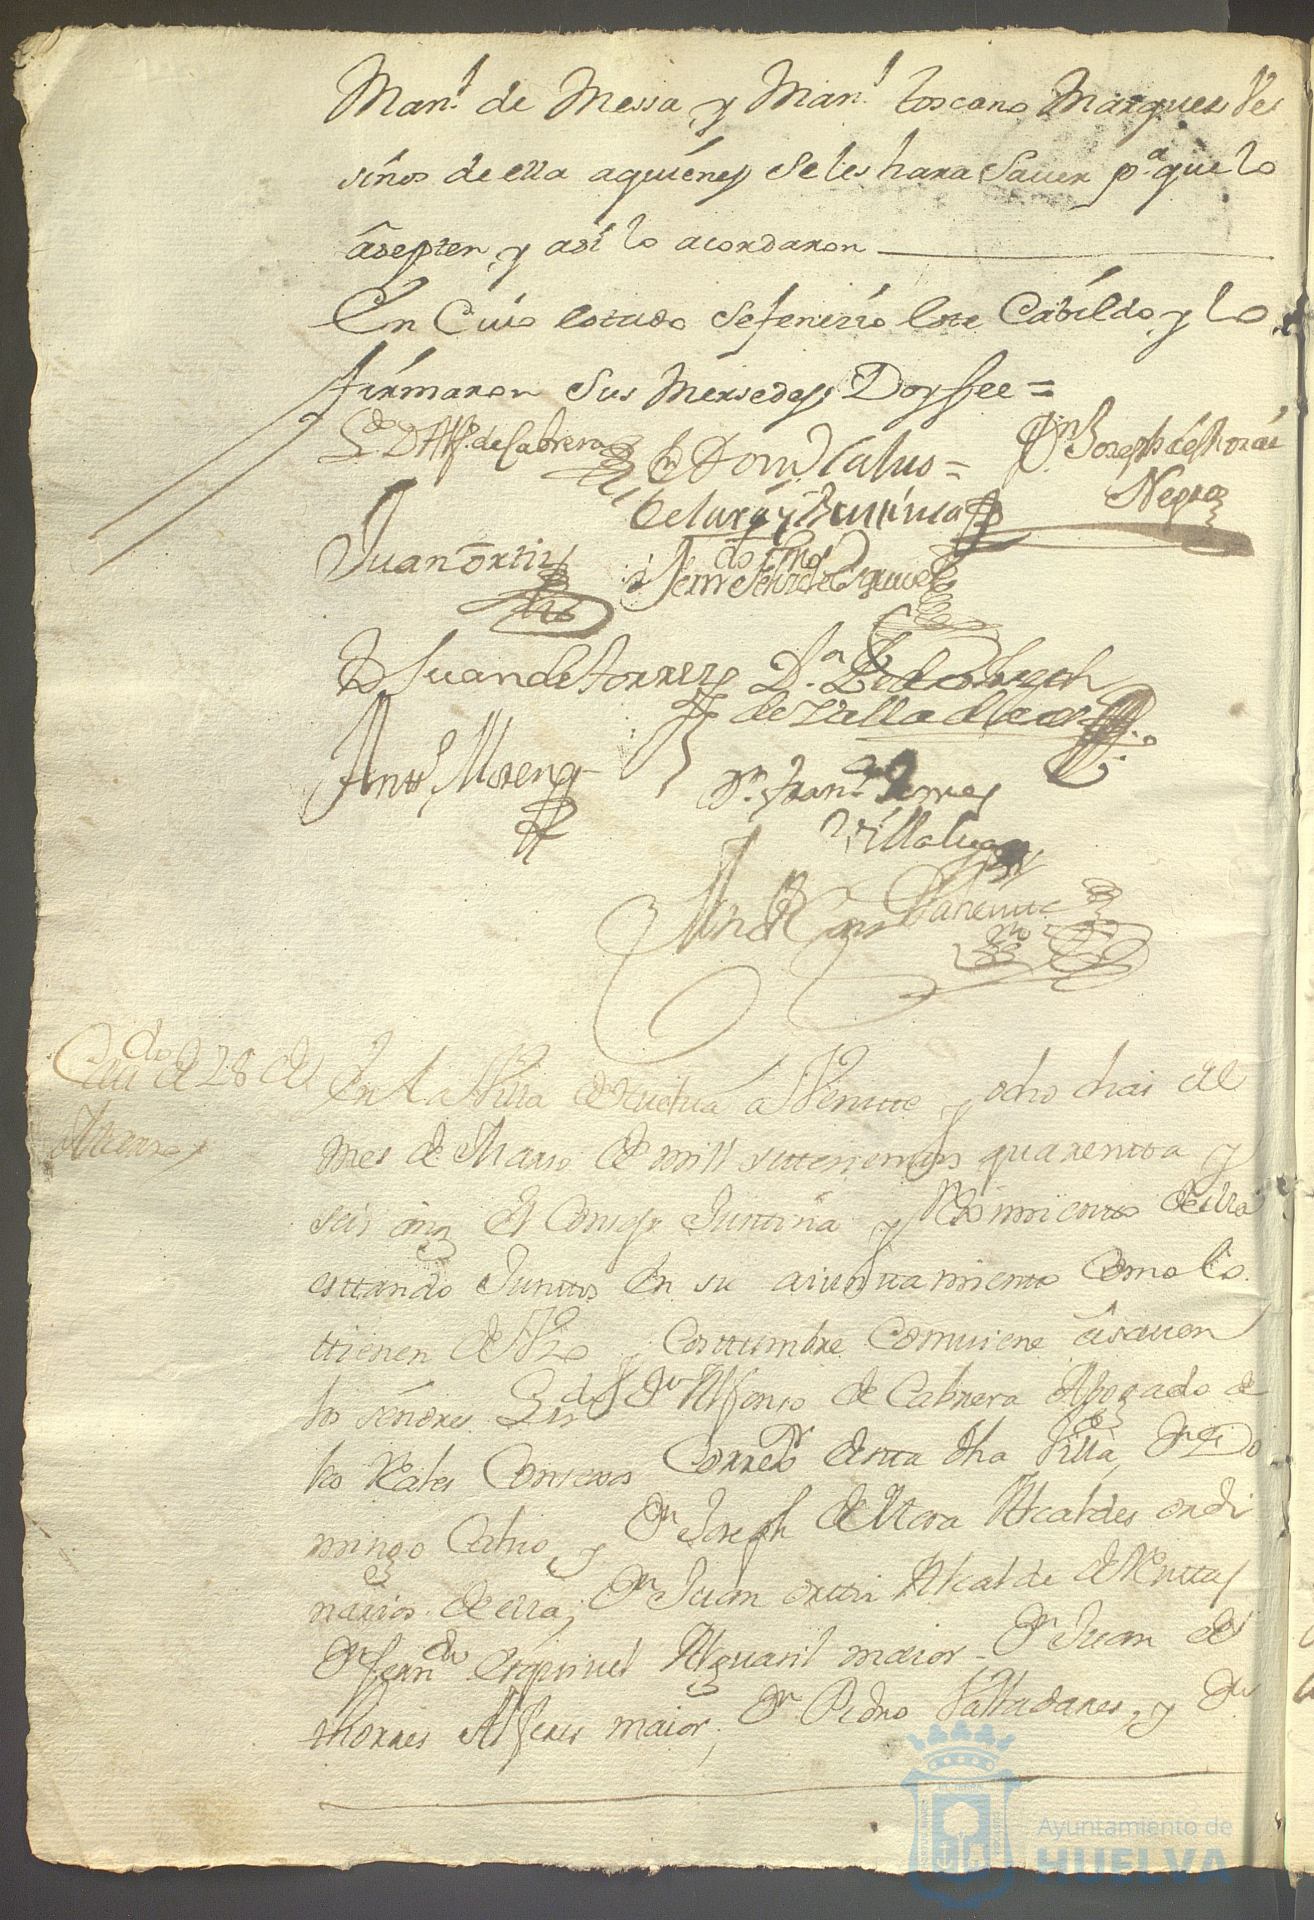 Man.l de Messa y Man.l toscano Marques Ve
sinos de ella aquienes se les hara Saver p.a que lo
asepten y asi lo acordaron
En Cuio estado sefenezio este Cabildo y lo
firmaron Sus Mersedes Doy fee =
L.do D Alf.o de Cabrera
D.n Dom.o Calvo =
D.n Joseph de Mora
Negro
Juan ortiz
D Fern.do Esquivel
D Juan de torres
D.n Pedro
de Valladares
Ant.o Moreno
D.n Fran.co
Villalua
Cav.do de 28 de
Marzo
En la Villa de Huelva a Veinte y ocho dias del
mes de Marzo de mill setezientos quarenta y
seis años El Consejo Justizia y Reximiento de ella
estando Juntos en su aiuntamiento Como lo
tienen de Vso y Costumbre Combiene asauer
los señores Liz.do D.n Alfonso de Cabrera Abogado de
los Reales Consexos Corre.or desta dha Villa, D.n Do
mingo Calvo y D.n Joseph de Mora Alcaldes ordi
narios de ella, D.n Juan ortiz Alcalde de Rentas
D.n Fern.do Esquivel Alguasil maior D.n Juan de
thorres Alferes maior, D.n Pedro Valladares, y D.n
Ayuntamiento de
HUELVA